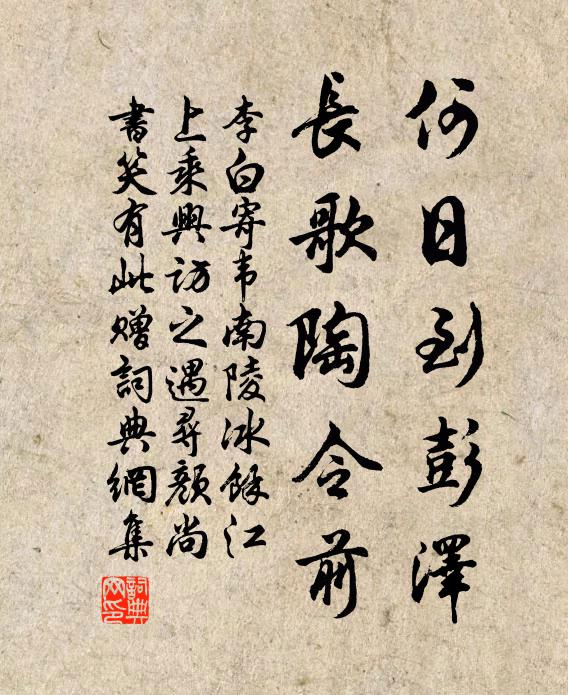 何日到彭澤
長歌陶令前
李白寄韦南陵冰餘江
上乘興訪之遇尋顏尚
書笑有此贈詞典網集
詞典